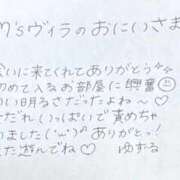 M'sヴィラのおにいさま
会いに来てくれてありがとう
初めて入るお部屋に興奮
いい明るさだったよね〜♡
ただれ(いっぱいで責めちゃ
いました(´ω`)♡ありがとっ!
また遊んでね♡ ゆずる